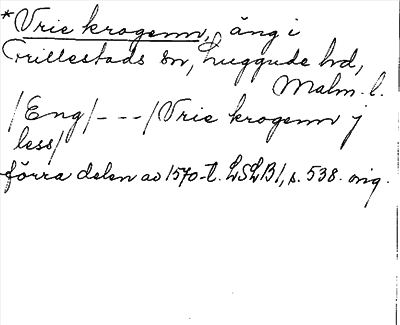 *Vrie krogenn, äng i
Frillestads sn, Luggude hd,
Malm. l.
/Eng/---/Vrie krogenn j
less/
förra delen av 1570-t. LSLB1, s. 538. orig.